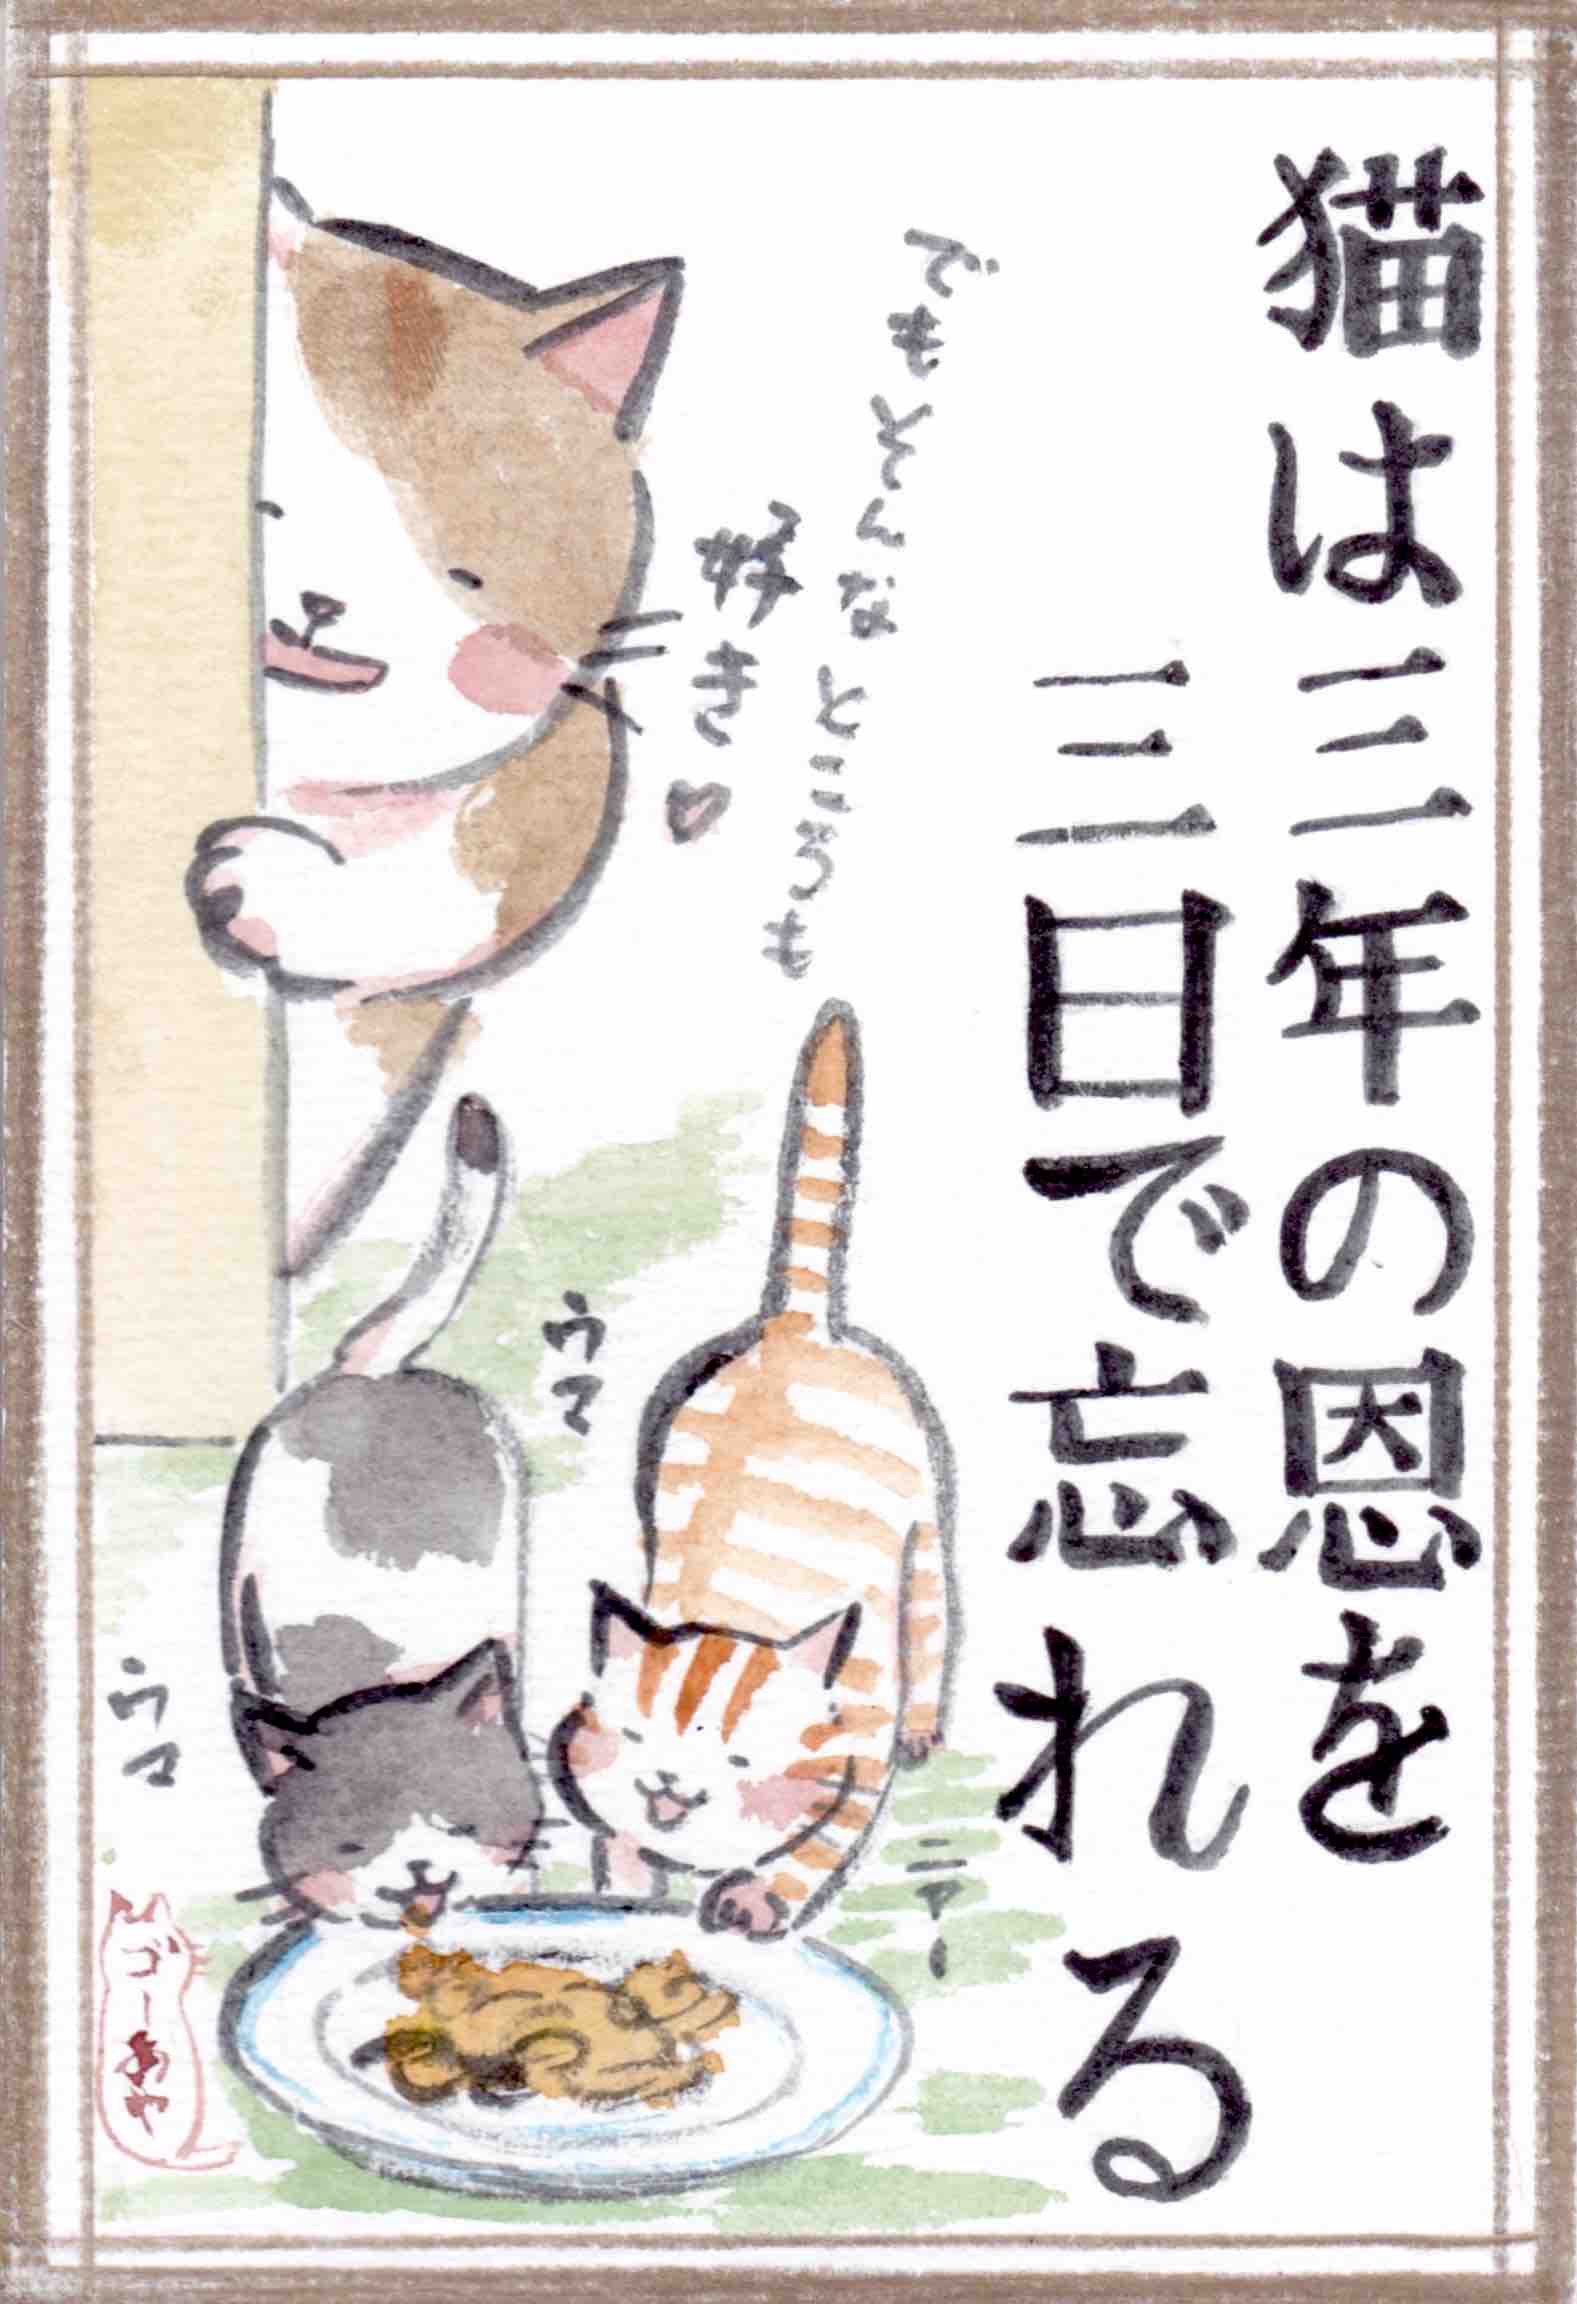 猫は三年の恩を
三日で忘れる
でもそんなところも
好き♡
ウマ
ウマ
ニャー
ゴーあや